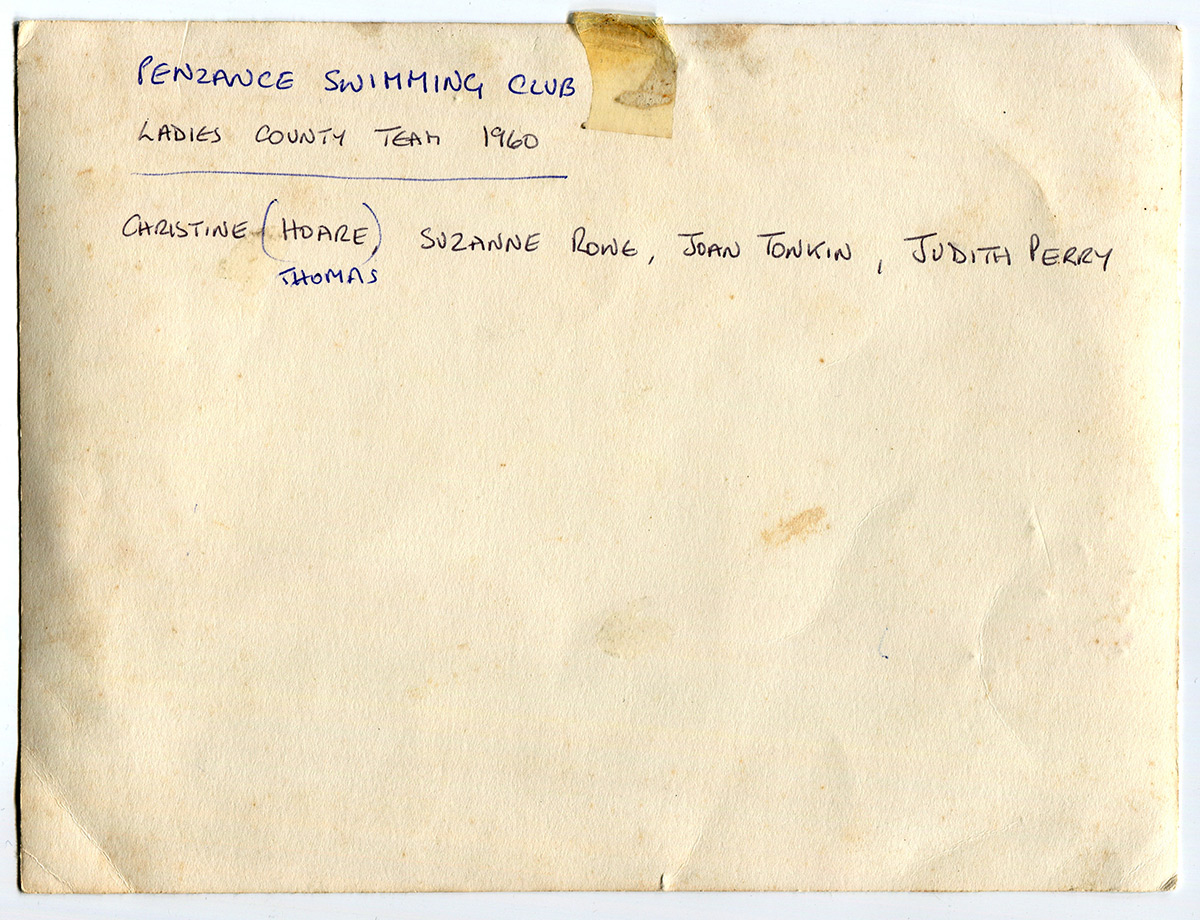 PENZANCE SWIMMING CLUB
LADIES COUNTY TEAM 1960
CHRISTINE (HOARE), SUZANNE ROWE, JOAN TONKIN, JUDITH PERRY
THOMAS